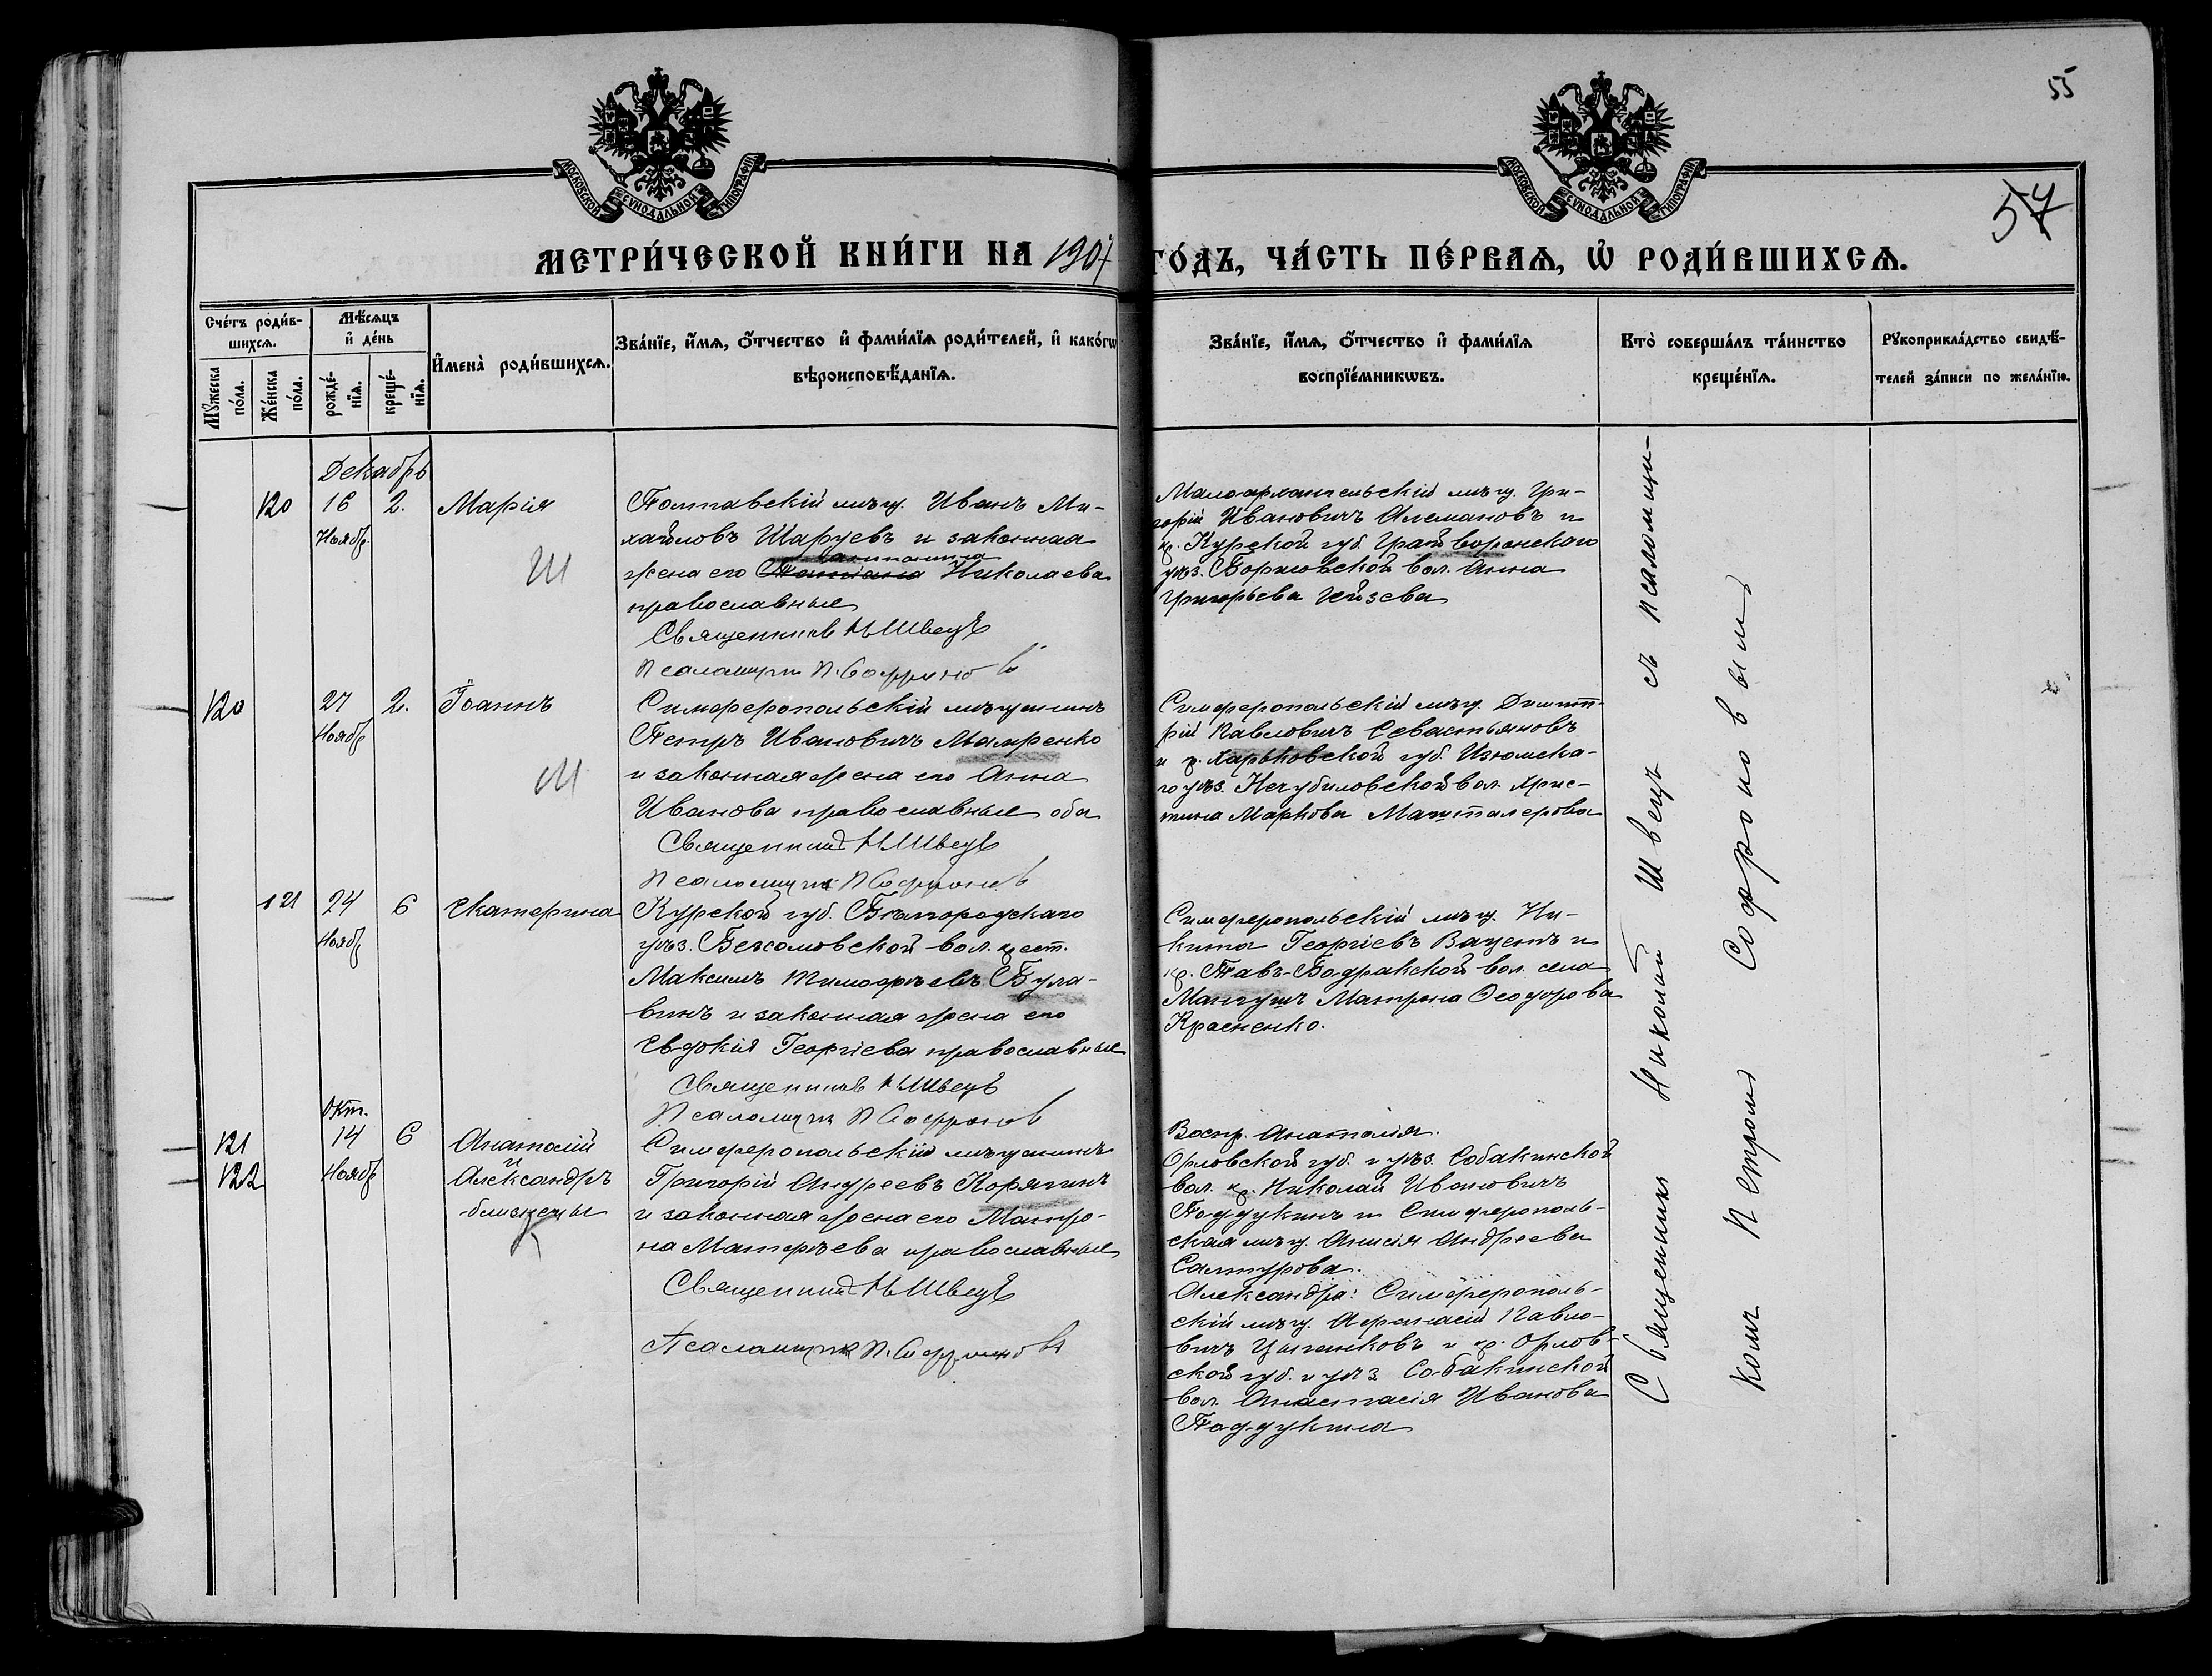 55
57
МОСКОВСКОЙ СУНОДАЛЬНОЙ ТИПОГРАФІИ
МОСКОВСКОЙ СУНОДАЛЬНОЙ ТИПОГРАФІИ
МЕТРИ́ЧЕСКОЙ КНИ́ГИ НА 1907
ГО́ДЪ, ЧА́СТЬ ПЕ́РВАѦ, Ѽ РОДИ́ВШИХСѦ.
Сче́тъ роди́в-
шихсѧ.
Мꙋ́жеска
по́ла.
Же́нска
по́ла.
Мѣ́сѧцъ
и҆ де́нь
рожде́-
нїѧ.
креще́-
нїѧ.
И҆мена̀ роди́вшихсѧ.
Зва́нїе, и҆́мѧ, ѻ҆́тчество и҆ фами́лїѧ роди́телей, и҆ како́гѡ
вѣроисповѣ́данїѧ.
Зва́нїе, и҆́мѧ, ѻ҆́тчество и҆ фами́лїѧ
воспрїе́мникѡвъ.
Кто̀ соверша́лъ та́инство
креще́нїѧ.
Рꙋкоприкла́дство свидѣ́-
телей за́писи по жела́нїю.
Декабрь
120 16 2. Марія
Ноябр.
Ш
Полтавскій мѣщ. Иванъ Ми-
хайловъ Шаруевъ и законная
жена его Николаева
православные
Священникъ Н Швецъ
Псаломщик П. Софронов
Малоархангельскій мѣщ. Гри-
горій Ивановичъ Алемановъ и
кр. Курской губ. Грайворонскаго
уѣз. Борисовской вол. Анна
Григорьева
120 27 2. Іоаннъ
Ноябр
Ш
Симферопольскій мѣщанинъ
Петръ Ивановичъ Мамренко
и законная жена его Анна
Иванова православные оба
Священникъ Н Швецъ
Псаломщик П Софронов
Симферопольскій мѣщ. Димит-
рій Павловичъ Севастьяновъ
и кр. Харьковской губ. Изюмска-
го уѣз. вол. Хрис-
тина Маркова Машталерова
121 24 6 Екатерина
Ноябр
Курской губ. Бѣлгородскаго
уѣз. вол. крест.
Максимъ Тимофѣевъ Була-
винъ и законная жена его
Евдокія Георгіева православные
Священникъ Н Швецъ
Псаломщик П Софронов
Симферопольскій мѣщ. Ни-
кита Георгіевъ и
кр. Тавъ-Бодракской вол. села
Мангушъ Матрона Ѳеодорова
Красненко.
Окт.
121 14 6 Анатолій
и
122 Ноябр Александръ
близнецы
Симферопольскій мѣщанинъ
Григорій Андреевъ Корягинъ
и законная жена его Матро-
на Матѳѣева православные
Священникъ Н Швецъ
Псаломщик П. Софронов
Воспр. Анатолія.
Орловской губ. и уѣз. Собакинской
вол. кр. Николай Ивановичъ
Поддукинъ и Симферополь-
ская мѣщ. Анисія Андреева
Сантурова.
Александра: Симферополь-
скій мѣщ. Афанасій Павло-
вичъ Цыганковъ и кр. Орлов-
ской губ. и уѣз Собакинской
вол. Анастасія Иванова
Поддукина
Священникъ Николай Швецъ съ псаломщи-
комъ Петромъ Софроновымъ